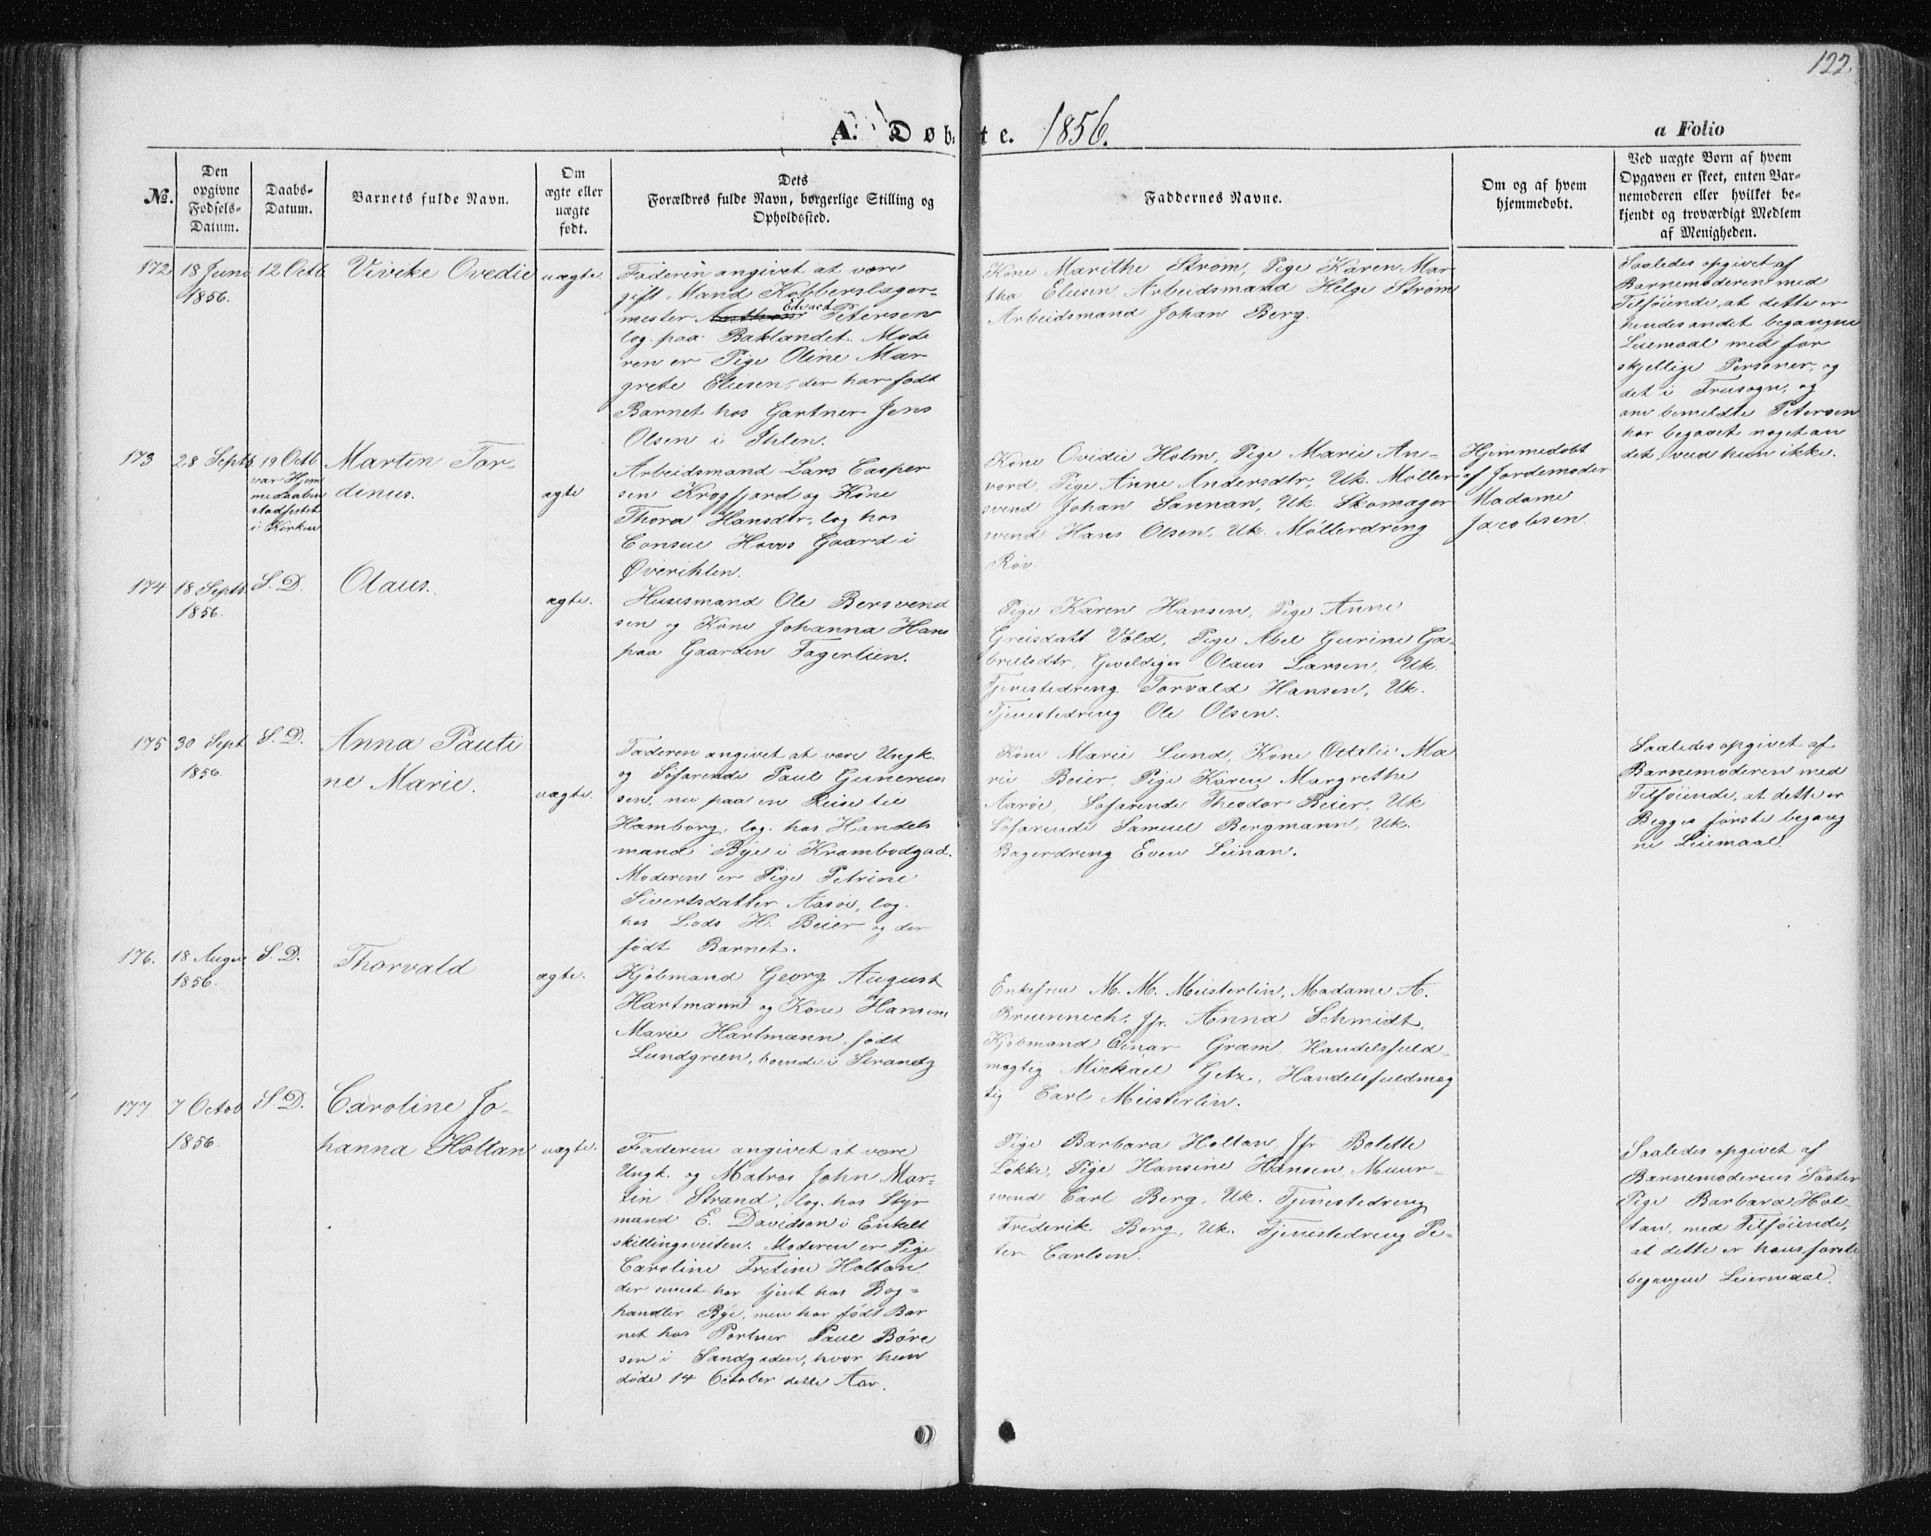 122.
A. Døbte. 1856.
a Folio
No.
Den
opgivne
Fødsels-
Datum.
Daabs-
Datum.
Barnets fulde Navn.
Om
ægte eller
uægte
født.
Dets
Forældres fulde Navn, borgerlige Stilling og
Opholdssted.
Faddernes Navne.
Om og af hvem
hjemmedøbt.
Ved uægte Børn af hvem
Opgaven er skeet, enten Bar-
nemoderen eller hvilket be-
kjendt og troværdigt Medlem
af Menigheden.
172
18 June
1856.
12 Octb
Vivike Ovedie
uægte.
Faderen angivet at være
gift Mand Kobberslager-
mester Edvard Petersen
log. paa Baklandet. Mode
ren er Pige Oline Mar
grete Eliesen, der har født
Barnet hos Gartner Jens
Olsen i Ihlen.
Kone Marithe Strøm, Pige Karen Mar
tha Eliesen, Arbeidsmand Helge Strøm
Arbeidsmand Johan Berg.
Saaledes opgivet af
Barnemoderen med
Tilføiende, at dette er
hendes andet begangne
Leiemaal med for
skjellige Personer, og
det i Fruesogn, og
om bemeldte Petersen
har begaaet noget an
det, veed hun ikke.
173
28 Septb.
19 Octb
var Hjem
medaaben
stadfestet
i Kirken
Martin Tor-
dinus.
ægte
Arbeidsmand Lars Casper
sen Krogfjord og Kone
Thora Hansdtr, log. hos
Consul Hoves Gaard i
Øverihlen.
Kone Ovidie Holm, Pige Marie An-
vord, Pige Anne Andersdtr, Uk. Møller
svend Johan Sannan, Uk. Skomager
svend Hans Olsen, Uk. Møllerdreng
Röv.
Hjemmedøbt
af Jordemoder
Madame
Jacobsen.
174
18 Septb.
1856.
S. D.
Olaus.
ægte.
Huusmand Ole Bersvend
sen og Kone Johanna Hans
paa Gaarden Fagerlien.
Pige Karen Hansen, Pige Anne
Greisdatt Vold, Pige Abel Gurine Ga-
brielsdtr, Geveldiger Olaus Larsen, Uk.
Tjenestedreng Torvald Hansen, Uk.
Tjenestedreng Ole Olsen.
175
30 Sept
1856.
S. D.
Anna Pauli
ne Marie.
uægte.
Faderen angivet at være Ungk.
og Søfarende Paul Gunerius
sen, nu paa en Reise til
Hamborg, log. hos Handels
mand Bÿe i Krambodgad.
Moderen er Pige Petrine
Sivertsdatter Aarøe, log.
hos Lods H. Beier og der
født Barnet.
Kone Marie Lund, Kone Odelie Ma
rie Beier, Pige Karen Margrethe
Aarøe, Søfarende Theodor Beier, Uk
Søfarende Samuel Bergmann, Uk.
Bagerdreng Even Leinan.
Saaledes opgivet af
Barnemoderen med
Tilføiende, at dette er
Begges første begang
ne Leiemaal.
176.
18 Augu
1856.
S. D.
Thorvald
ægte.
Kjøbmand Georg August
Hartmann og Kone Hansine
Marie Hartmann, født
Lundgreen, boende i Strandg
Enkefrue M. M. Meisterlin, Madame A.
Bruennech, Jfr. Anna Schmidt,
Kjøbmand Einar Gram, Handelsfuld-
mægtig Mickael Getz, Handelsfuldmæg
tig Carl Meisterlin.
177
7 Octob
1856.
S. D.
Caroline Jo-
hanna Holtan
uægte.
Faderen angivet at være
Ungk. og Matros John Mar-
tin Strand, log. hos Styr
mand E. Davidsen i Enkelt
skillingsveiten. Moderen er Pige
Caroline Fretine Holtan,
der sidst har tjent hos Bog-
handler Bye, men har født Bar
net hos Portner Paul Böre
sen i Sandgaden, hvor hun
døde 14 October dette Aar.
Pige Barbara Holtan, Jfr Bolette
Løkke, Pige Hansine Hansen, Muur-
svend Carl Berg, Uk. Tjenestedreng
Frederik Berg, Uk. Tjenestedreng Pe-
ter Carlsen.
Saaledes opgivet af
Barnemoderens Søster
Pige Barbara Hol-
tan, med Tilføiende,
at dette er hans første
begangne Leiermaal.